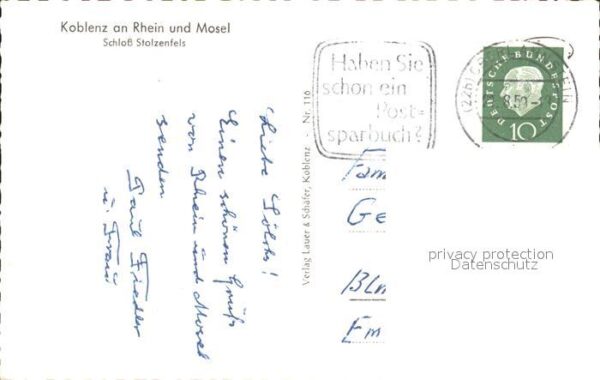 Koblenz an Rhein und Mosel
Schloß Stolzenfels
Haben Sie
schon ein
Post-
sparbuch?
DEUTSCHE BUNDESPOST
10
Verlag Lauer & Schäfer, Koblenz - Nr. 116
Liebe
Einen schönen Gruß
von Rhein und Mosel
senden
Paul Fiedler
u. Frau
Fam
Ge
Em
privacy protection
Datenschutz